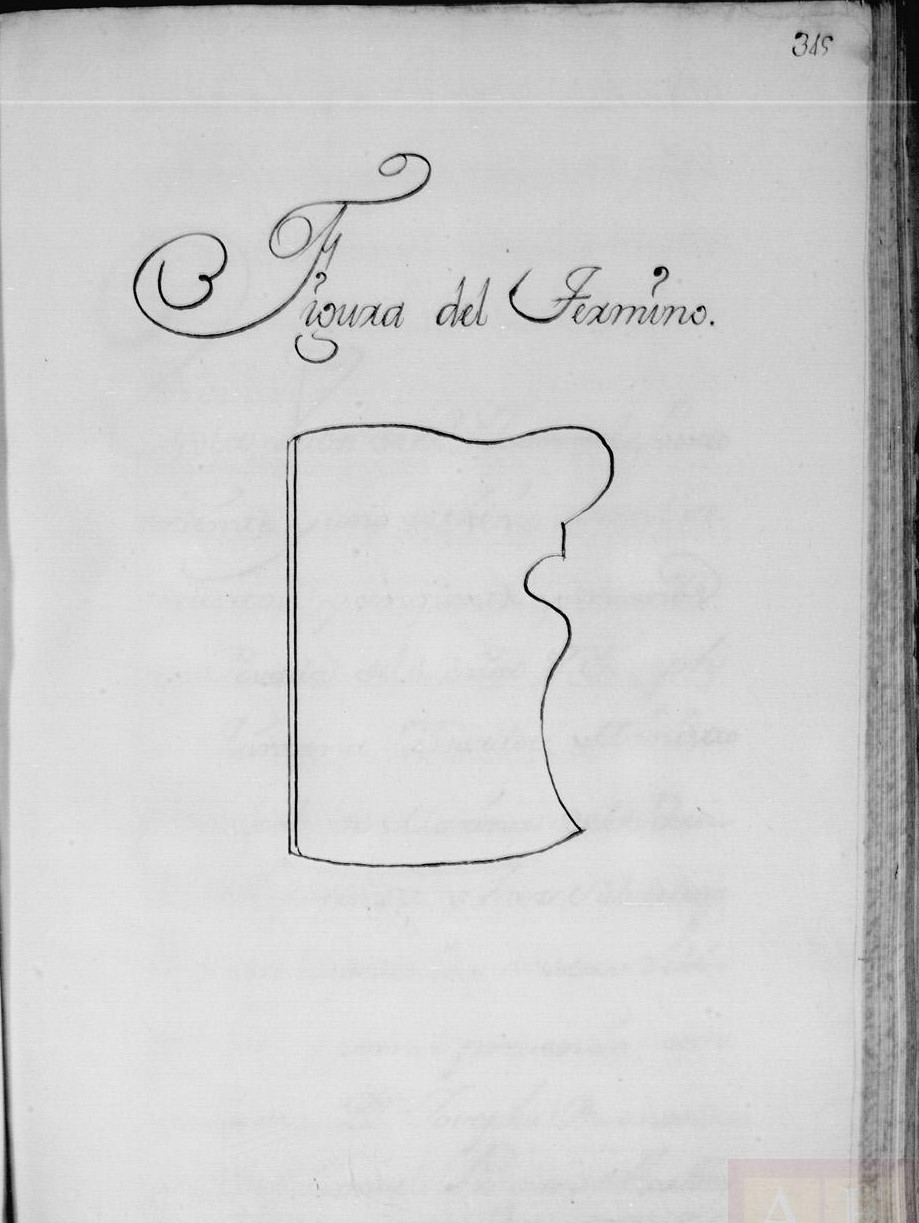 315
Figura del Termino.